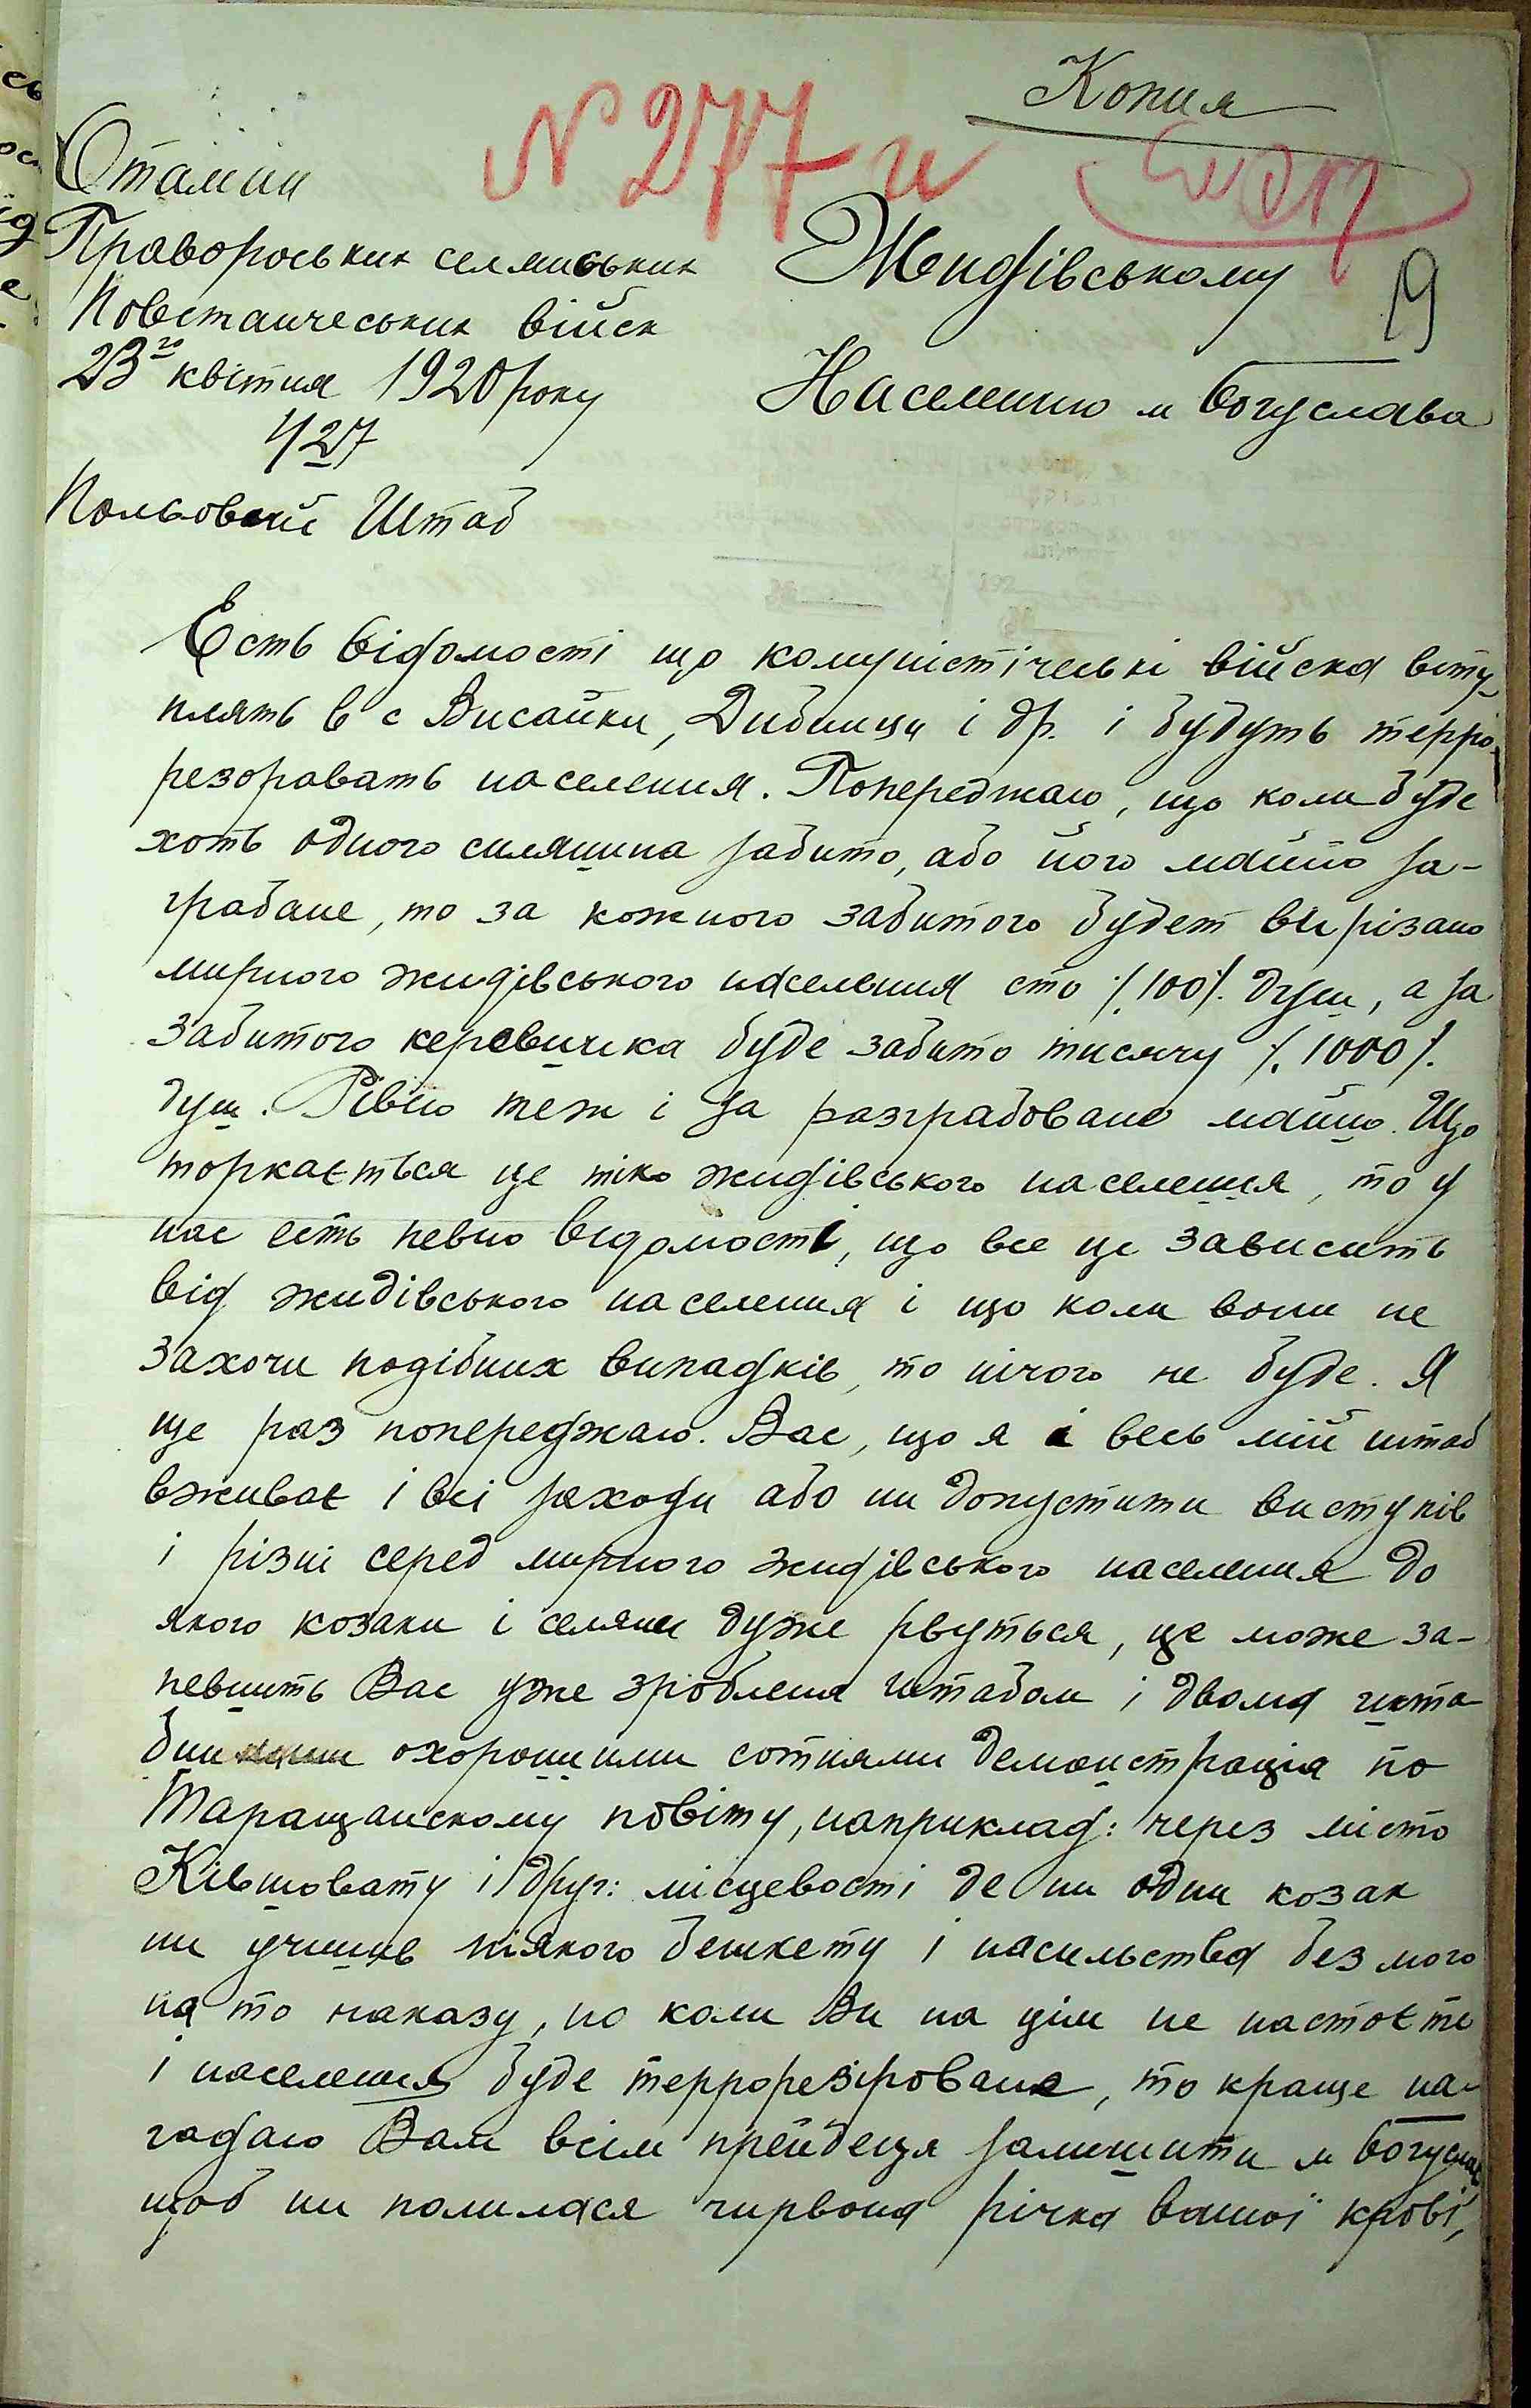 Копия
N 277 и
19
Отаман
Правороських селянських
Повстанчеських війск
23го квітня 1920 року
427
Польовий Штаб
Жидівському
Населенню м Богуслава
Есть відомості що комуністічеські війска всту-
плять в с Висайки, Дибинци і др. і будуть терро-
резоравать населення. Попереджаю, що коли буде
хоть одного силянина забито, або його майно за-
грабане, то за кожного забитого будет вирізано
мирного жидівського населення сто /.100/. душ, а за
забитого керовничка буде забито тисячу /.1000/.
душ. Рівно теж і за разграбовано майно. Що
торкається це тіко жидівського населення, то у
нас есть певно відомості, що все це зависить
від жидівського населення і що коли вони не
захочи подібних випадків, то нічого не буде. Я
ще раз попереджаю. Вас, що я і весь мій штаб
вживає і всі заходи або ни допустити виступів
і різні серед мирного жидівського населения до
якого козаки і селяни дуже рвуться, це може за-
певнить Вас уже зроблена штабом і двома шта-
бни охоронними сотнями демонстрація по
Таращанскому повіту, наприклад: через місто
Ківшовату і друг: місцевості де ни один козак
ни учинив ніякого бешкету і насильства без мого
на то наказу, но коли Ви на цім не настоєте
і населення буде террорезірована, то краще на-
гадаю Вам всім прейдеця залишити м Богуслав
щоб ни полилася чирвона річка вашої крові,